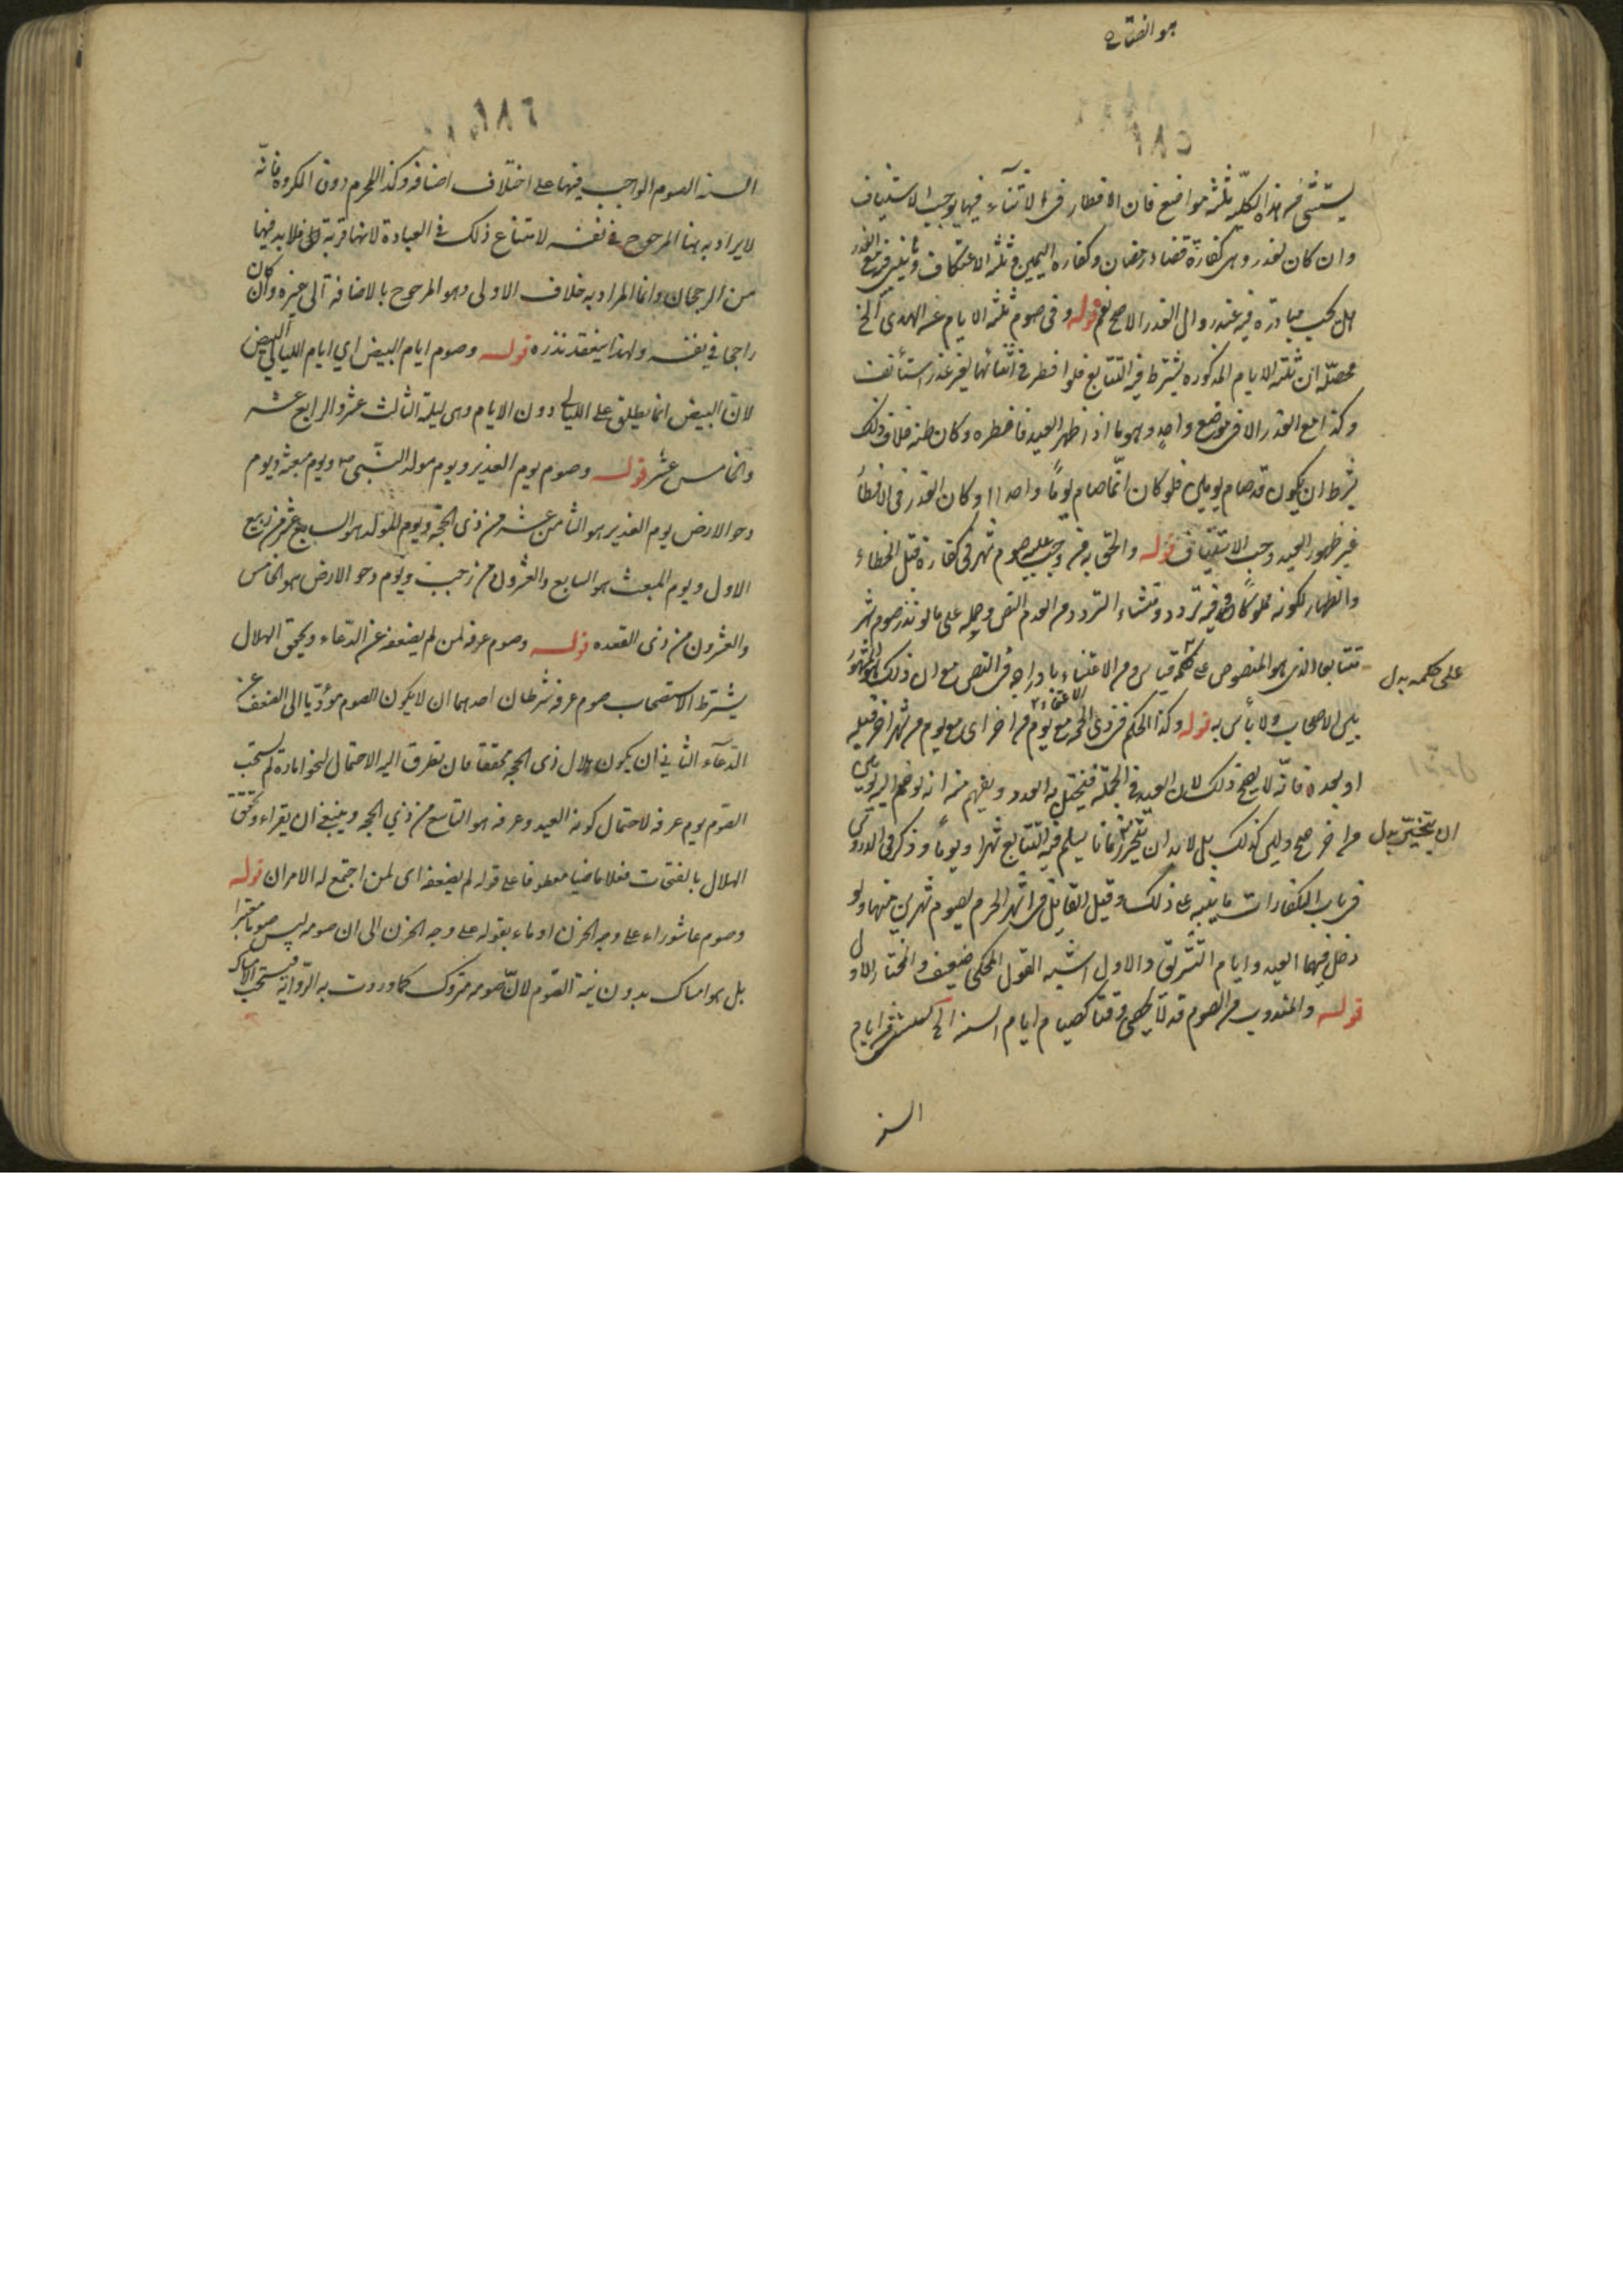 يستثنى من هذا الكليه ثلثه مواضع فان الافطار في الاثناء فيها يوجب الاستيناف
وان كان لعذر وهي كفارة قضاء رمضان وكفاره اليمين وثلثه الاعتكاف
هل يجب مبادرة فيه عند زوال العذر الاصح نعم قوله وفي صوم ثلثه الايام عن الهدى الخ
محصله ان ثلثه الايام المذكوره يشترط فيه التتابع فلو افطر في اثنائها لغير عذر استأنف
وكذا مع العذر الا في موضع واحد وهو ما اذا ظهر العيد فافطره وكان ظنه خلاف ذلك
بشرط ان يكون قد صام يومين فلو كان انما صام يوما واحدا او كان العذر في الافطار
غير ظهور العيد وجب الاستيناف قوله والحق به من وجب عليه صوم شهر في كفارة قتل الخطاء
والظهار لكونه مملوكا وفيه تردد ومنشاء التردد من عدم النص وحمله على ما لو نذر صوم شهر
متتابعا الذي هو المنصوص على حكمه قياس ومن الاعتناء باندراجه في النص مع ان ذلك هو المشهور
على حكمه بدل
بين الاصحاب ولا بأس به قوله وكذا الحكم في ذي الحجه مع يوم من اخر اى مع يوم من شهر اخر قبله
او بعده فانه لا يصح ذلك لان العيد في الجملة فيختل به العدد ويفهم منه انه لو ضم اليه يومين
من اخر صح وليس كذلك بل لا بد ان يتحرز زمانا يسلم فيه التتابع شهرا ويوما وذكر في الدروس
ان يتخير بدل
في باب الكفارات ما ينبه على ذلك وقيل القاتل في اشهر الحرم يصوم شهرين منها ولو
دخل فيهما العيد وايام التشريق والاول اشبه القول المحكى ضعيف والمختار الاول
قوله والمندوب من الصوم قد لا يختص وقتا كصيام ايام السنه الخ يستثنى من ايام
السنه
السنه الصوم الواجب فيها على اختلاف اصنافه وكذا المحرم دون المكروه فانه
لا يراد به هنا المرجوح في نفسه لامتناع ذلك في العبادة لانها قربة فلا بد فيها
من الرجحان وانما المراد به خلاف الاولى وهو المرجوح بالاضافة الى غيره وان كان
راجحا في نفسه ولهذا ينعقد نذره قوله وصوم ايام البيض اي ايام الليالي البيض
لان البيض انما يطلق على الليالي دون الايام وهي ليلة الثالث عشر والرابع عشر
والخامس عشر قوله وصوم يوم الغدير ويوم مولد النبي ص ويوم مبعثه ويوم
دحو الارض يوم الغدير هو الثامن عشر من ذي الحجه ويوم المولد هو السابع عشر من ربيع
الاول ويوم المبعث هو السابع والعشرون من رجب ويوم دحو الارض هو الخامس
والعشرون من ذي القعده قوله وصوم عرفه لمن لم يضعفه عن الدعاء ويحقق الهلال
يشترط لاستحباب صوم عرفه شرطان احدهما ان لا يكون الصوم مؤديا الى الضعف عن
الدعاء الثاني ان يكون هلال ذي الحجه محققا فان تطرق اليه الاحتمال لنحو امارة لم يستحب
الصوم يوم عرفه لاحتمال كونه العيد وعرفه هو التاسع من ذي الحجه وينبغي ان يقراء وتحقق
الهلال بالفتحات فعلا ماضيا معطوفا على قوله لم يضعفه اى لمن اجتمع له الامران قوله
وصوم عاشوراء على وجه الحزن اوماء بقوله على وجه الحزن الى ان صومه ليس صوما معتبرا
بل هو امساك بدون نية الصوم لان صومه متروك كما وردت به الرواية فيستحب الامساك